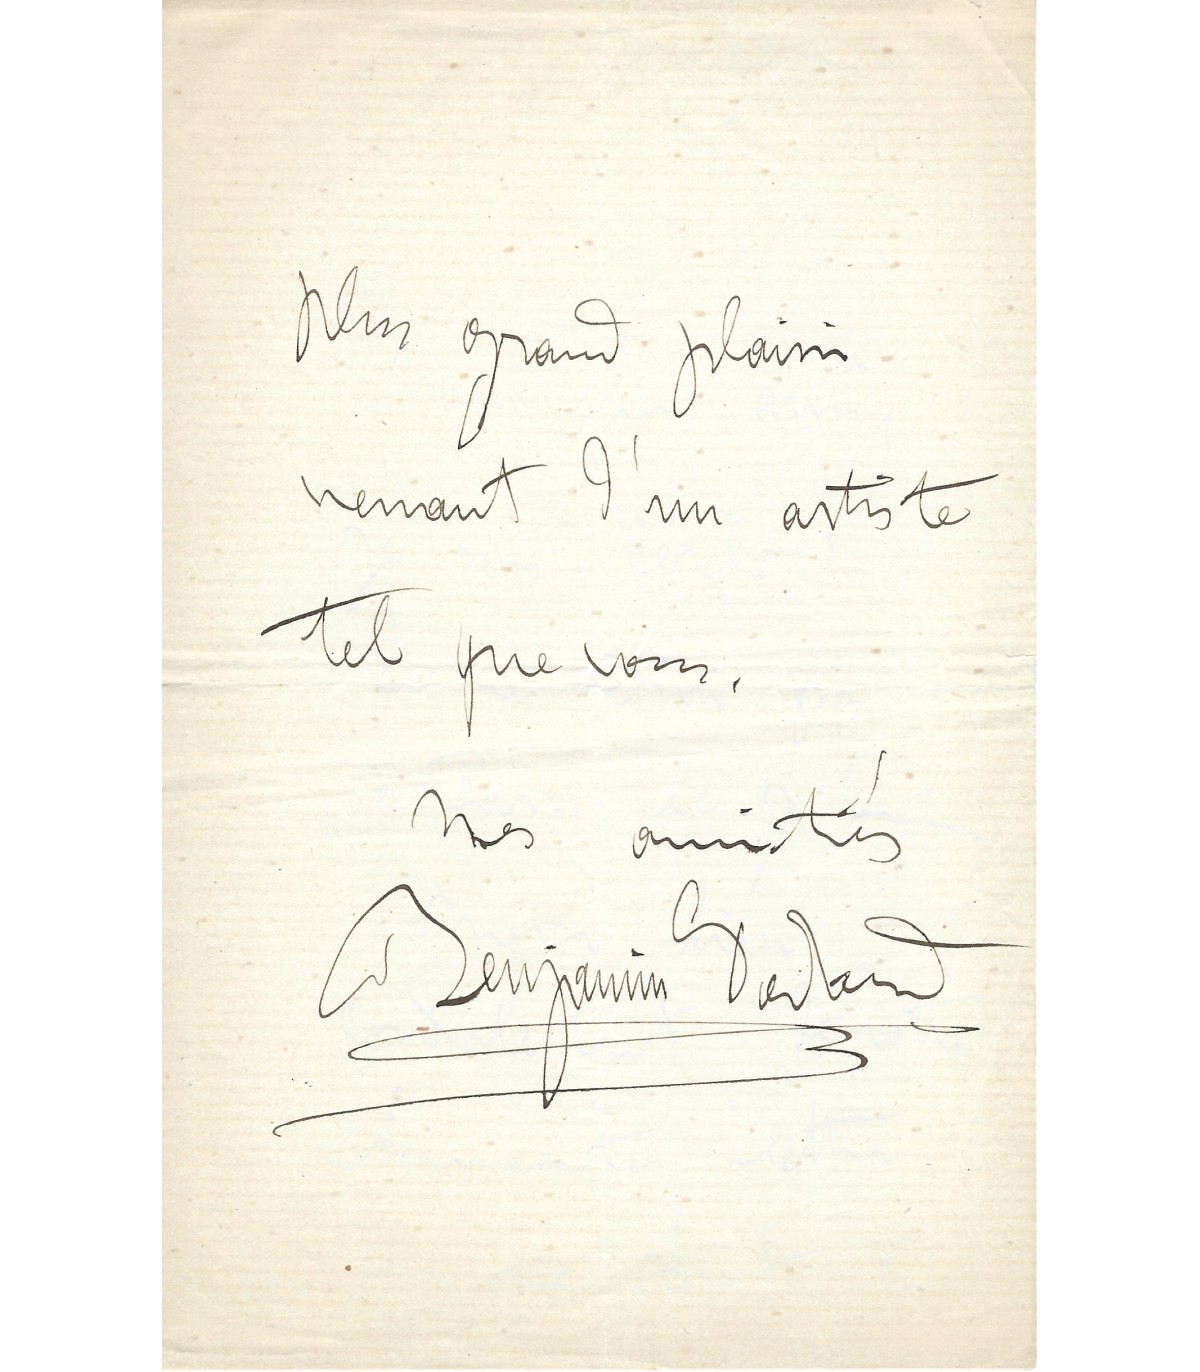 plus grand plaisir
venant d'un artiste
tel que vous.
Mes amitiés
Benjamin Godard